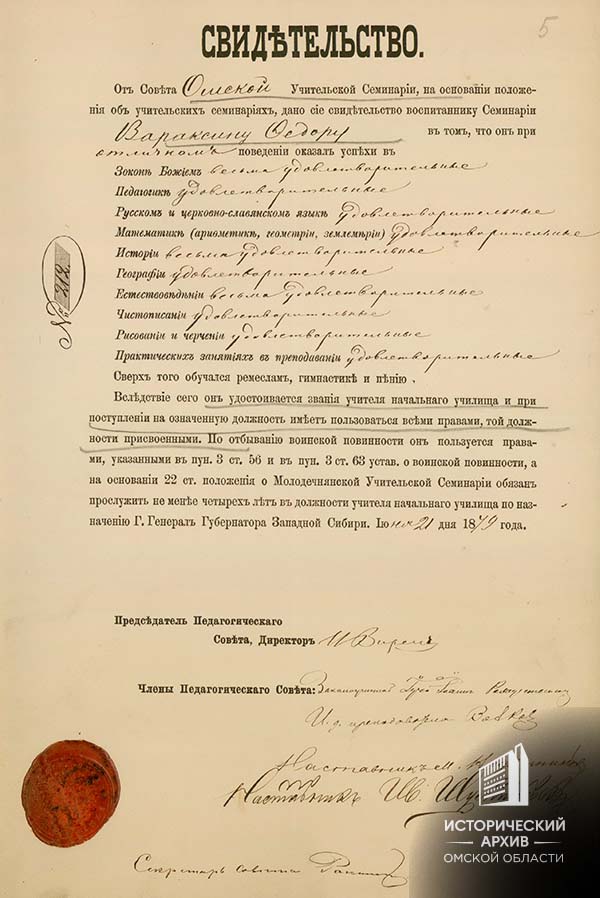 5
СВИДѢТЕЛЬСТВО.
Отъ Совѣта Омской Учительской Семинаріи, на основаніи положе-
нія объ учительскихъ семинаріяхъ, дано сіе свидѣтельство воспитаннику Семинаріи
Вараксину Ѳедору въ томъ, что онъ при
отличномъ поведеніи оказалъ успѣхи въ
Законѣ Божіемъ весьма удовлетворительные
Педагогикѣ удовлетворительные
Русскомъ и церковно-славянскомъ языкѣ удовлетворительные
Математикѣ (ариѳметикѣ, геометріи, землемѣріи) удовлетворительные
Исторіи весьма удовлетворительные
Географіи удовлетворительные
Естествовѣдѣніи весьма удовлетворительные
Чистописаніи удовлетворительные
Рисованіи и черченіи удовлетворительные
Практическихъ занятіяхъ въ преподаваніи удовлетворительные
Сверхъ того обучался ремесламъ, гимнастикѣ и пѣнію.
Вслѣдствіе сего онъ удостоивается званія учителя начальнаго училища и при
поступленіи на означенную должность имѣетъ пользоваться всѣми правами, той долж-
ности присвоенными. По отбыванію воинской повинности онъ пользуется права-
ми, указанными въ пун. 3 ст. 56 и въ пун. 3 ст. 63 устав. о воинской повинности, а
на основаніи 22 ст. положенія о Молодечнянской Учительской Семинаріи обязанъ
прослужить не менѣе четырехъ лѣтъ въ должности учителя начальнаго училища по наз-
наченію Г. Генералъ Губернатора Западной Сибири. Іюня 21 дня 1879 года.
№ 212
Предсѣдатель Педагогическаго
Совѣта, Директоръ
Члены Педагогическаго Совѣта: Законоучитель
И. д. преподавателя
Наставникъ
Наставникъ Ив.
Секретарь совѣта
ИСТОРИЧЕСКИЙ
АРХИВ
ОМСКОЙ ОБЛАСТИ